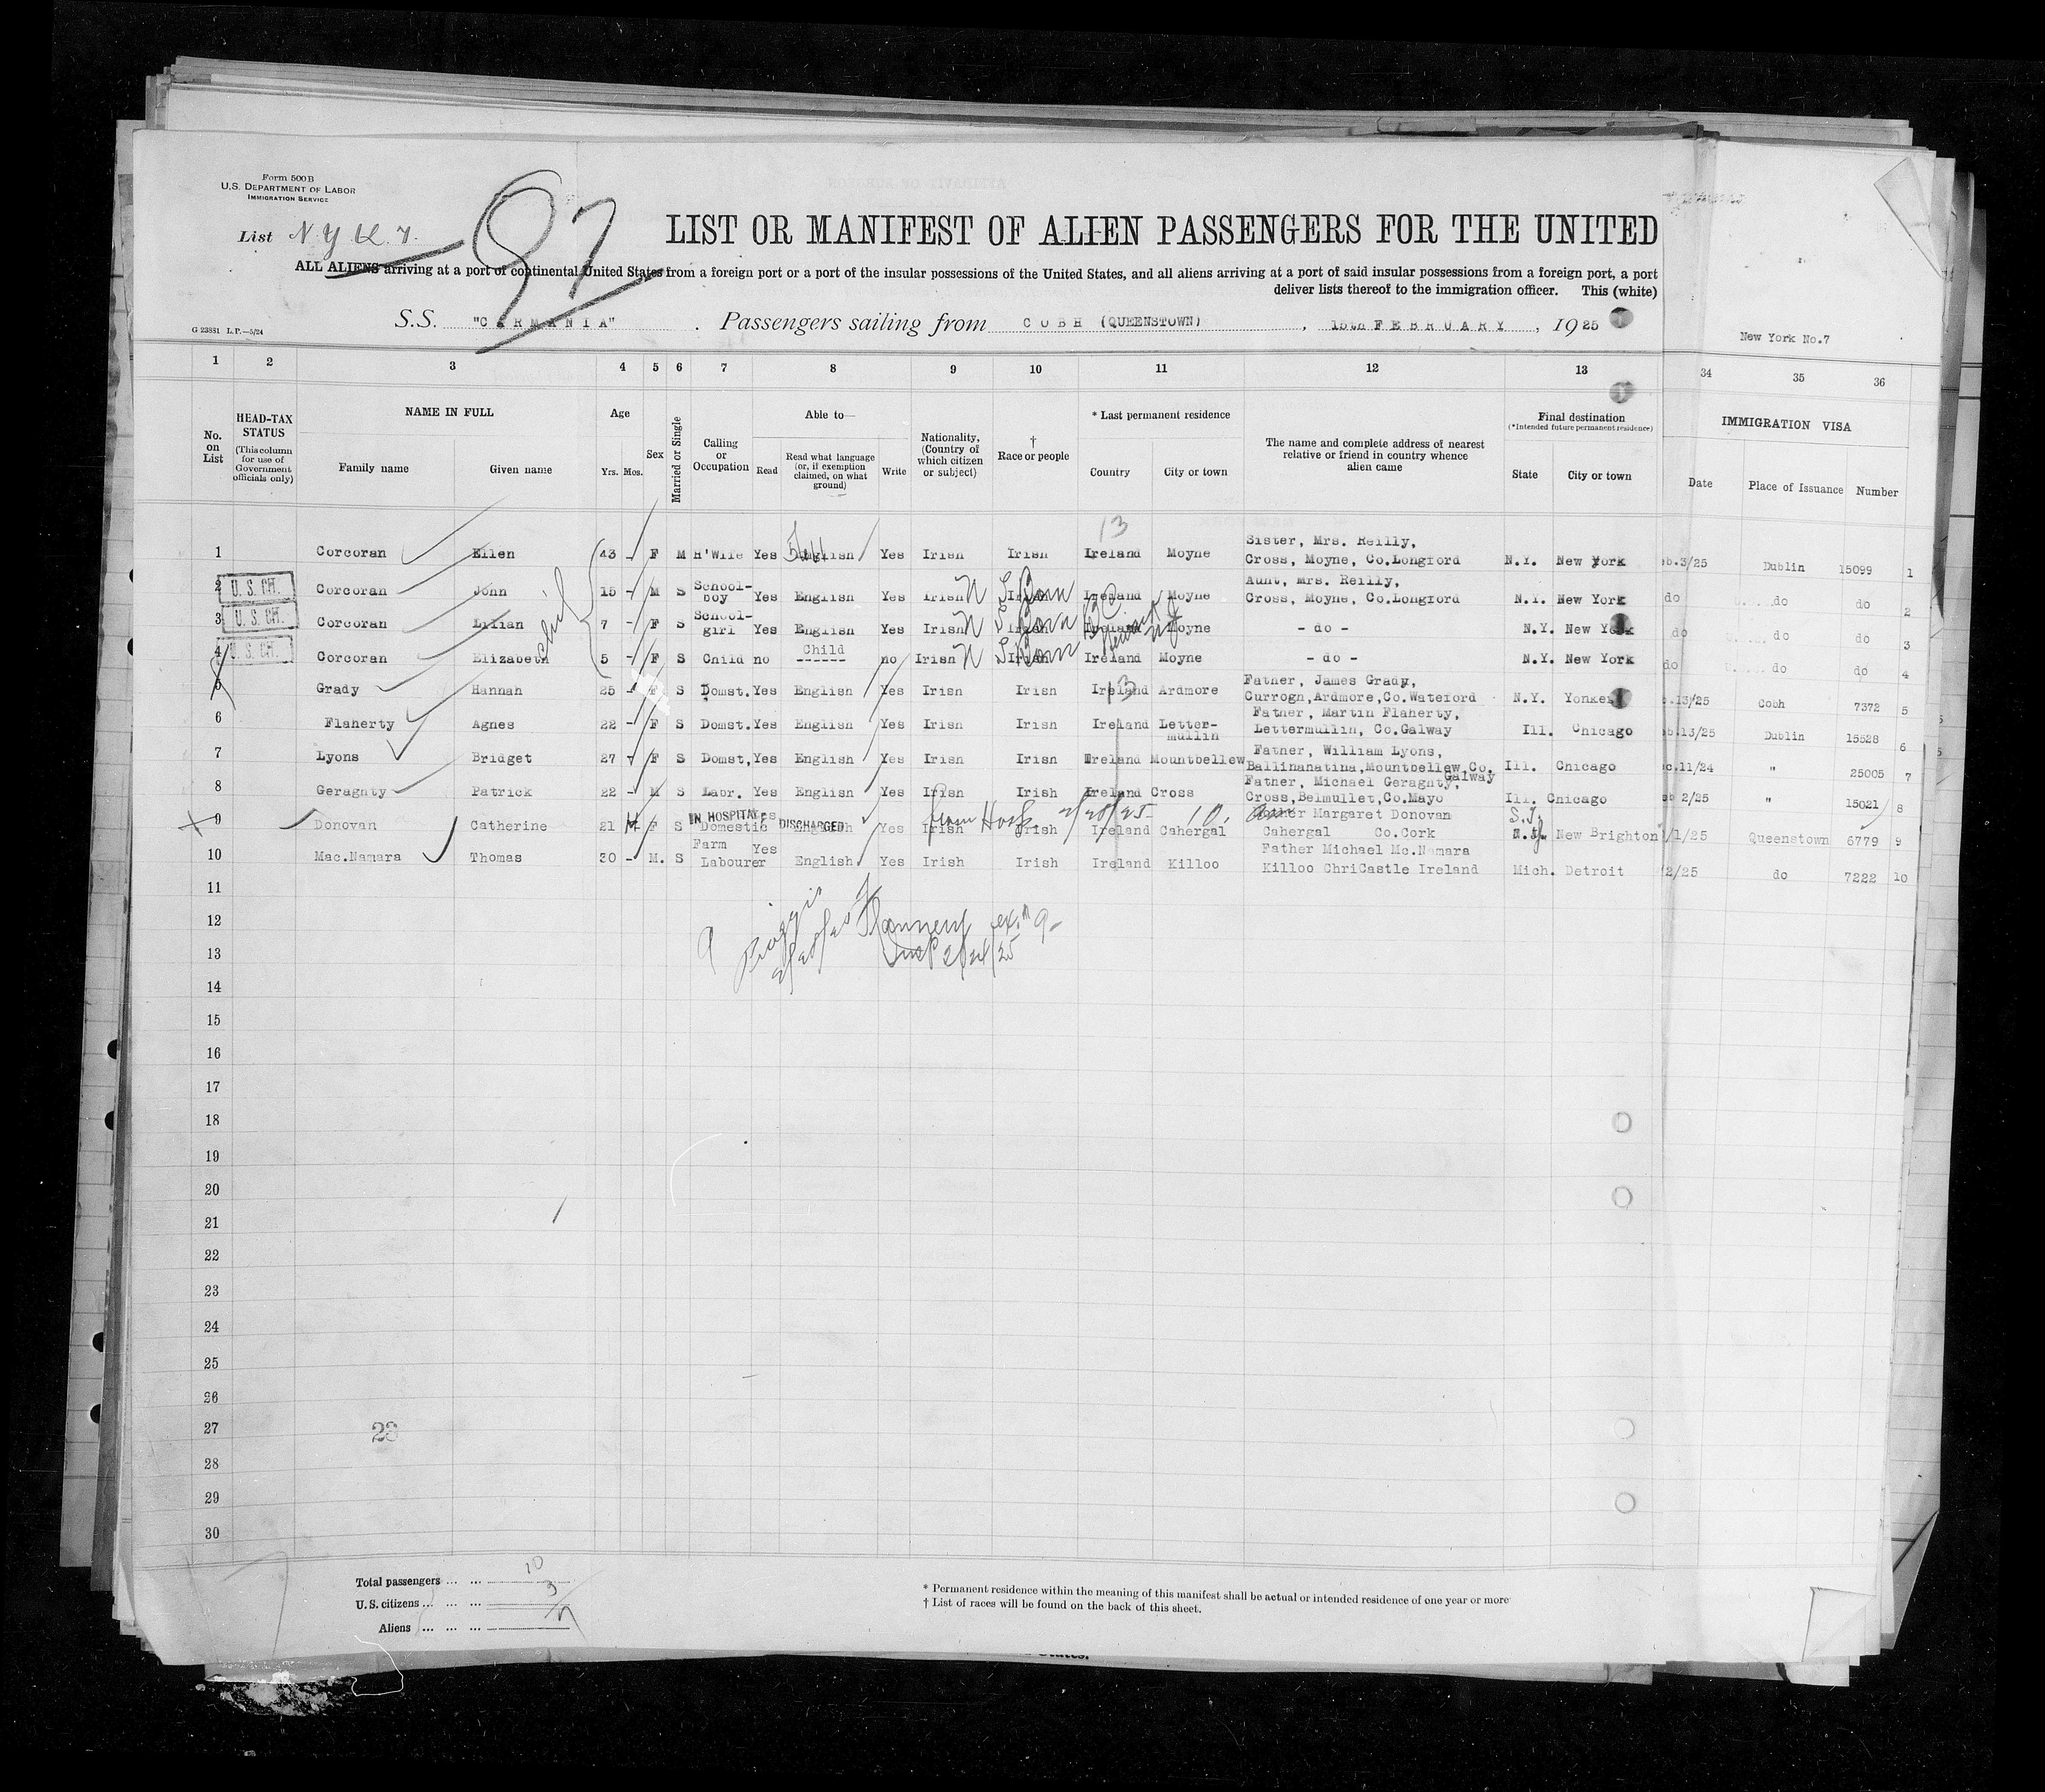 Form 500B
U.S. DEPARTMENT OF LABOR
IMMIGRATION SERVICE
List N Y
97
LIST OR MANIFEST OF ALIEN PASSENGERS FOR THE UNITED
ALL ALIENS arriving at a port of continental United States from a foreign port or a port of the insular possessions of the United States, and all aliens arriving at a port of said insular possessions from a foreign port, a port
deliver lists thereof to the immigration officer. This (white)
G 23881 L.P.—5/24
S.S. "CARMANIA". Passengers sailing from COBH (QUEENSTOWN), 15th FEBRUARY, 1925
New York No.7
1 2 3 4 5 6 7 8 9 10 11 12 13 34 35 36
No. on List
HEAD-TAX STATUS (This column for use of Government officials only)
NAME IN FULL
Family name Given name
Age
Yrs. Mos.
Sex
Married or Single
Calling or Occupation
Able to—
Read Read what language (or, if exemption claimed, on what ground) Write
Nationality, (Country of which citizen or subject)
† Race or people
* Last permanent residence
Country City or town
The name and complete address of nearest relative or friend in country whence alien came
Final destination
(*Intended future permanent residence)
State City or town
IMMIGRATION VISA
Date Place of Issuance Number
13
1 Corcoran Ellen 43 - F M H'Wife Yes English Yes Irish Irish Ireland Moyne Sister, Mrs. Reilly, Cross, Moyne, Co.Longford N.Y. New York b.3/25 Dublin 15099 1
2 U.S. CH. Corcoran John 15 - M S School-boy Yes English Yes Irish N Irish Born Ireland Moyne Aunt, Mrs. Reilly, Cross, Moyne, Co.Longford N.Y. New York do do do 2
3 U.S. CH. Corcoran Lilian 7 - F S School-girl Yes English Yes Irish N Irish Born Ireland Moyne - do - N.Y. New York do do do 3
4 U.S. CH. Corcoran Elizabeth 5 - F S Child no Child ------ no Irish N Irish Born Ireland Moyne - do - N.Y. New York do do do 4
Newark NJ
13
5 Grady Hannah 25 - F S Domst. Yes English Yes Irish Irish Ireland Ardmore Father, James Grady, Currogh,Ardmore,Co.Wateford N.Y. Yonkers .13/25 Cobh 7372 5
6 Flaherty Agnes 22 - F S Domst. Yes English Yes Irish Irish Ireland Letter-mullin Father, Martin Flaherty, Lettermullin, Co.Galway Ill. Chicago b.13/25 Dublin 15528 6
7 Lyons Bridget 27 - F S Domst. Yes English Yes Irish Irish Ireland Mountbellew Father, William Lyons, Ballinanatina,Mountbellew,Co. Galway Ill. Chicago c.11/24 " 25005 7
8 Geraghty Patrick 22 - M S Labr. Yes English Yes Irish Irish Ireland Cross Father, Michael Geraghty, Cross,Belmullet,Co.Mayo Ill. Chicago b 2/25 " 15021 8
IN HOSPITAL DISCHARGED from Hosp 2/28/25 10.
9 Donovan Catherine 21 F S Domestic Yes English Yes Irish Irish Ireland Cahergal Margaret Donovan Cahergal Co.Cork S.I. N.Y. New Brighton /1/25 Queenstown 6779 9
10 Mac.Namara Thomas 30 - M. S Farm Labourer Yes English Yes Irish Irish Ireland Killoo Father Michael Mc.Namara Killoo ChriCastle Ireland Mich. Detroit 2/25 do 7222 10
11
12
13
Insp 2/24/25
14
15
16
17
18
19
20
21
22
23
24
25
26
27
23
28
29
30
Total passengers ... ... 10
U.S. citizens ... ... ... 3
Aliens ... ... ... 7
* Permanent residence within the meaning of this manifest shall be actual or intended residence of one year or more
† List of races will be found on the back of this sheet.